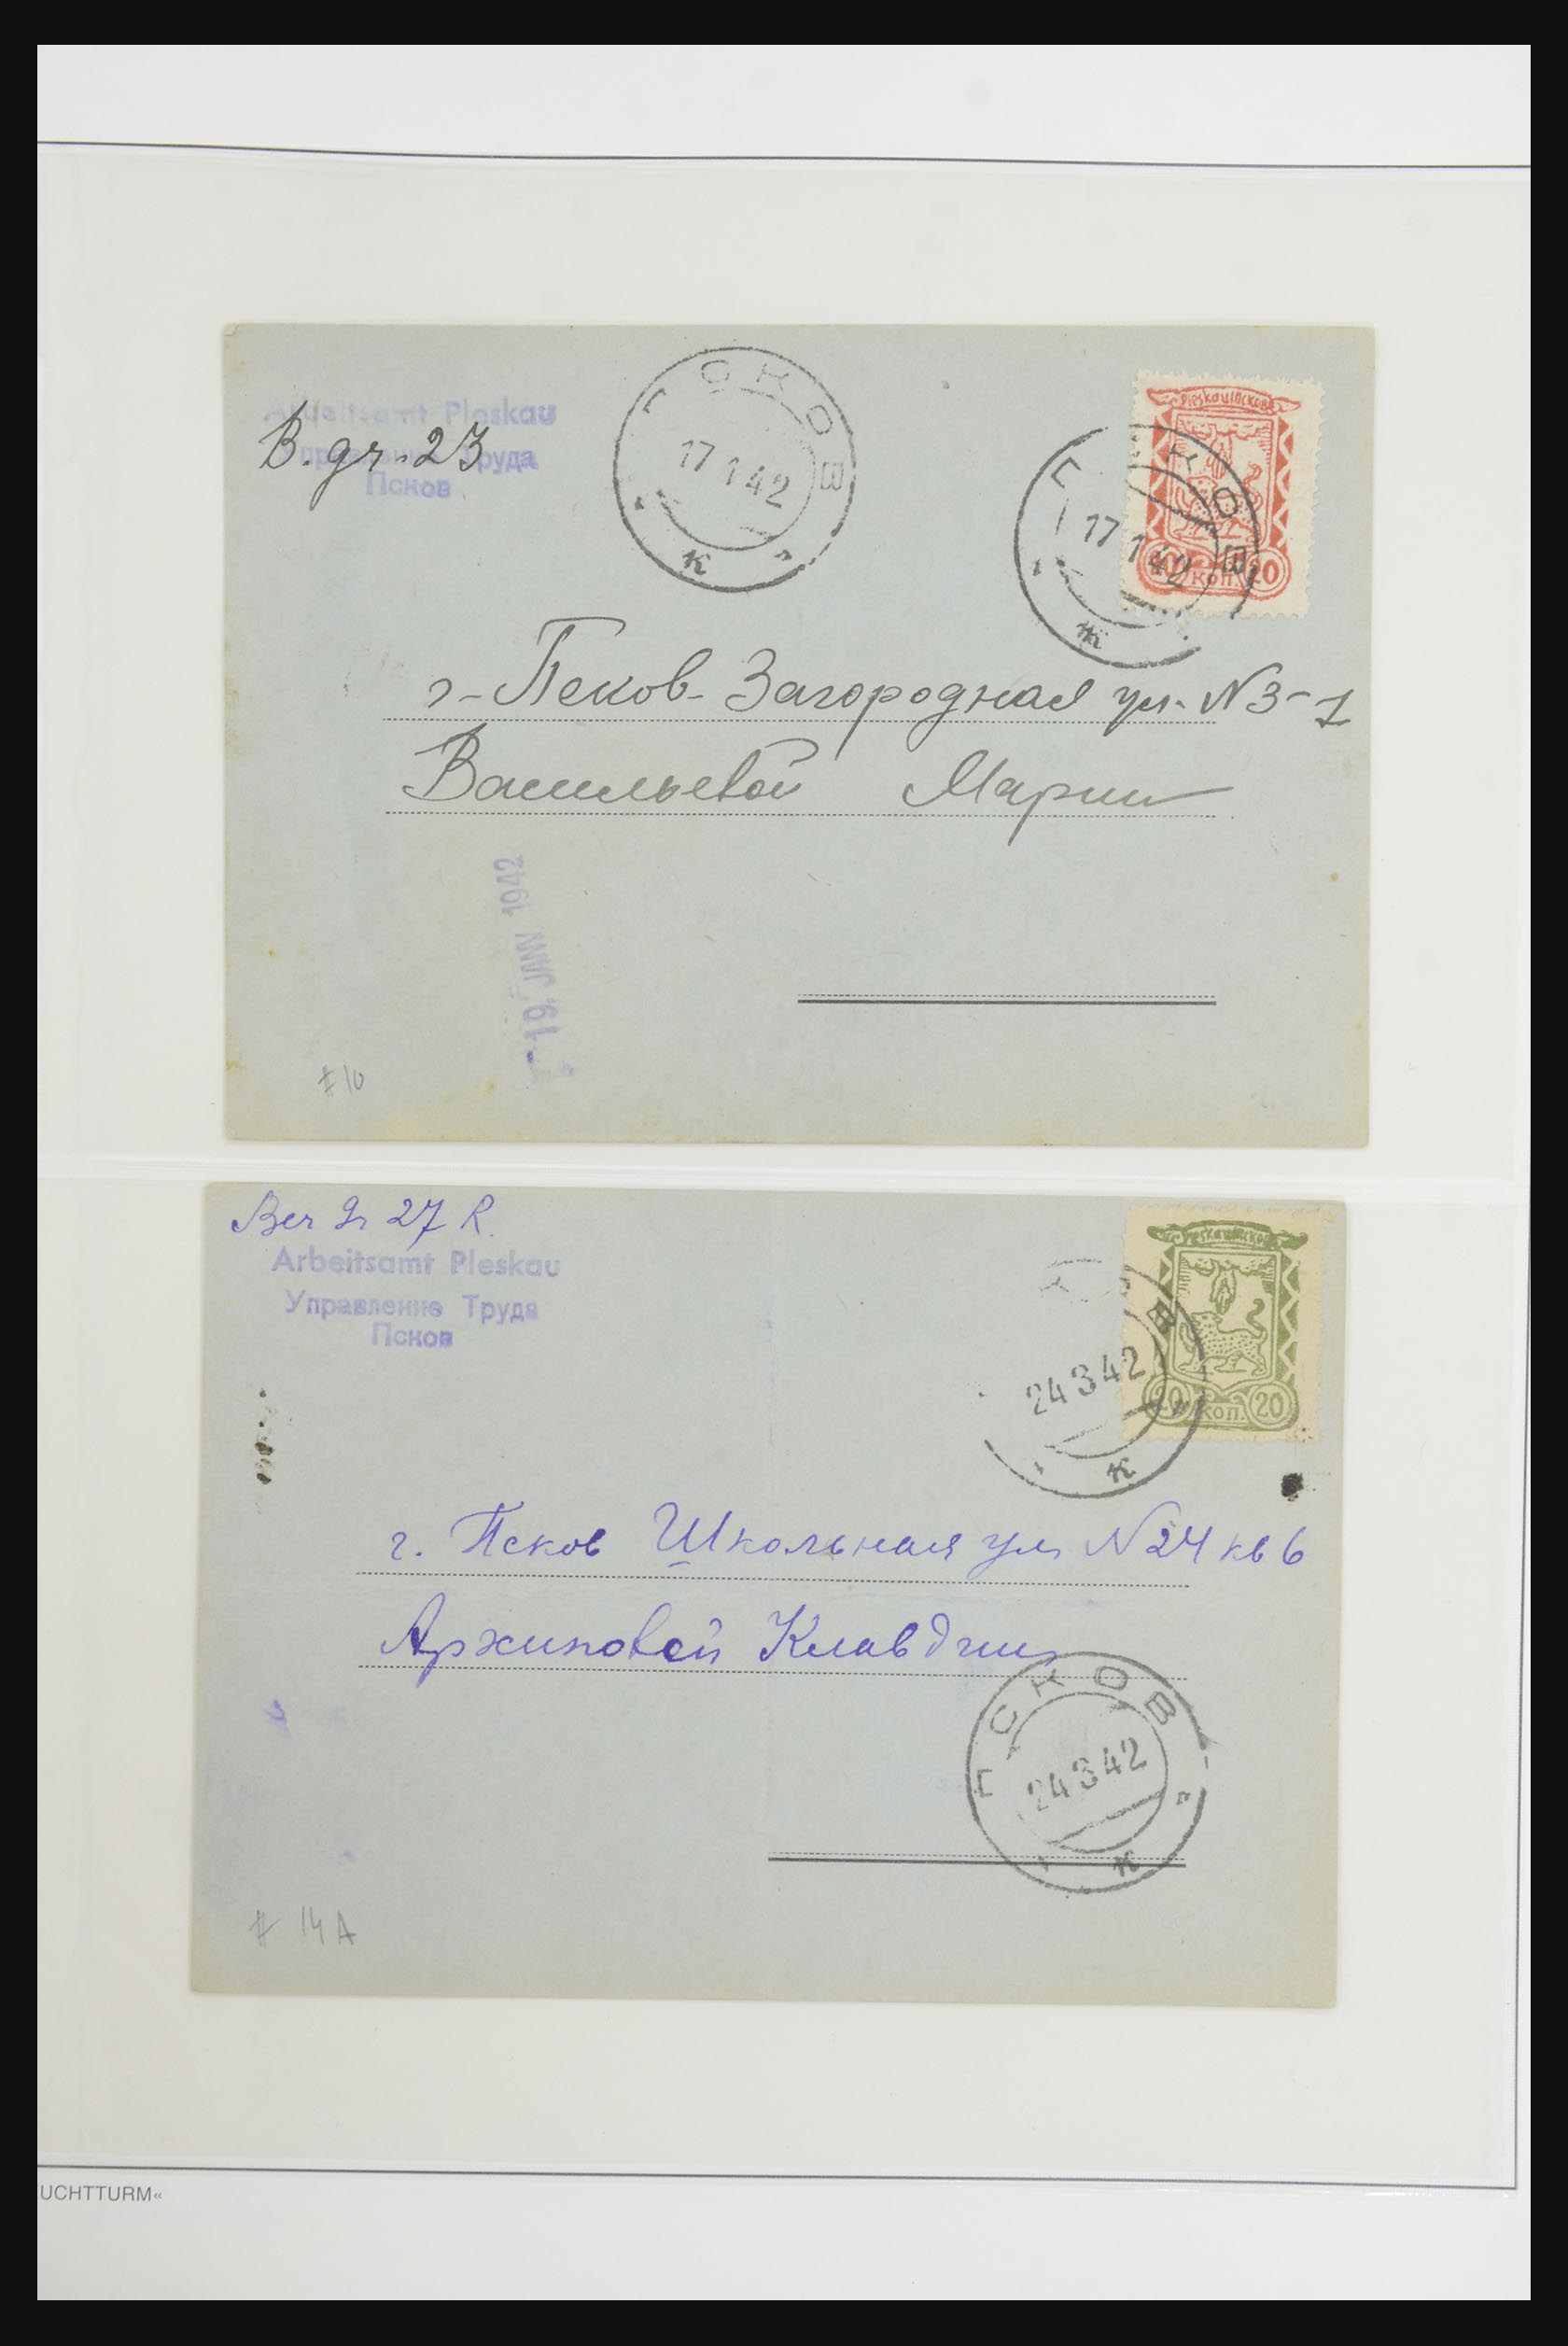 Arbeitsamt Pleskau
B. gr. 23
Управление Труда
Псков
ПСКОВ
17 1 42
к
Pleskau Псков
ПСКОВ
17 1 42
20 коп. 20
г-Псков-Загородная ул. N 3-1
Васильевой Марии
19. JAN 1942
# 10
Ber Gr 27 R.
Arbeitsamt Pleskau
Управление Труда
Псков
Pleskau Псков
24 3 42
20 коп. 20
к
г. Псков Школьная ул N 24 кв 6
Архиповой Клавдии
ПСКОВ
24 3 42
к
# 14A
UCHTTURM«